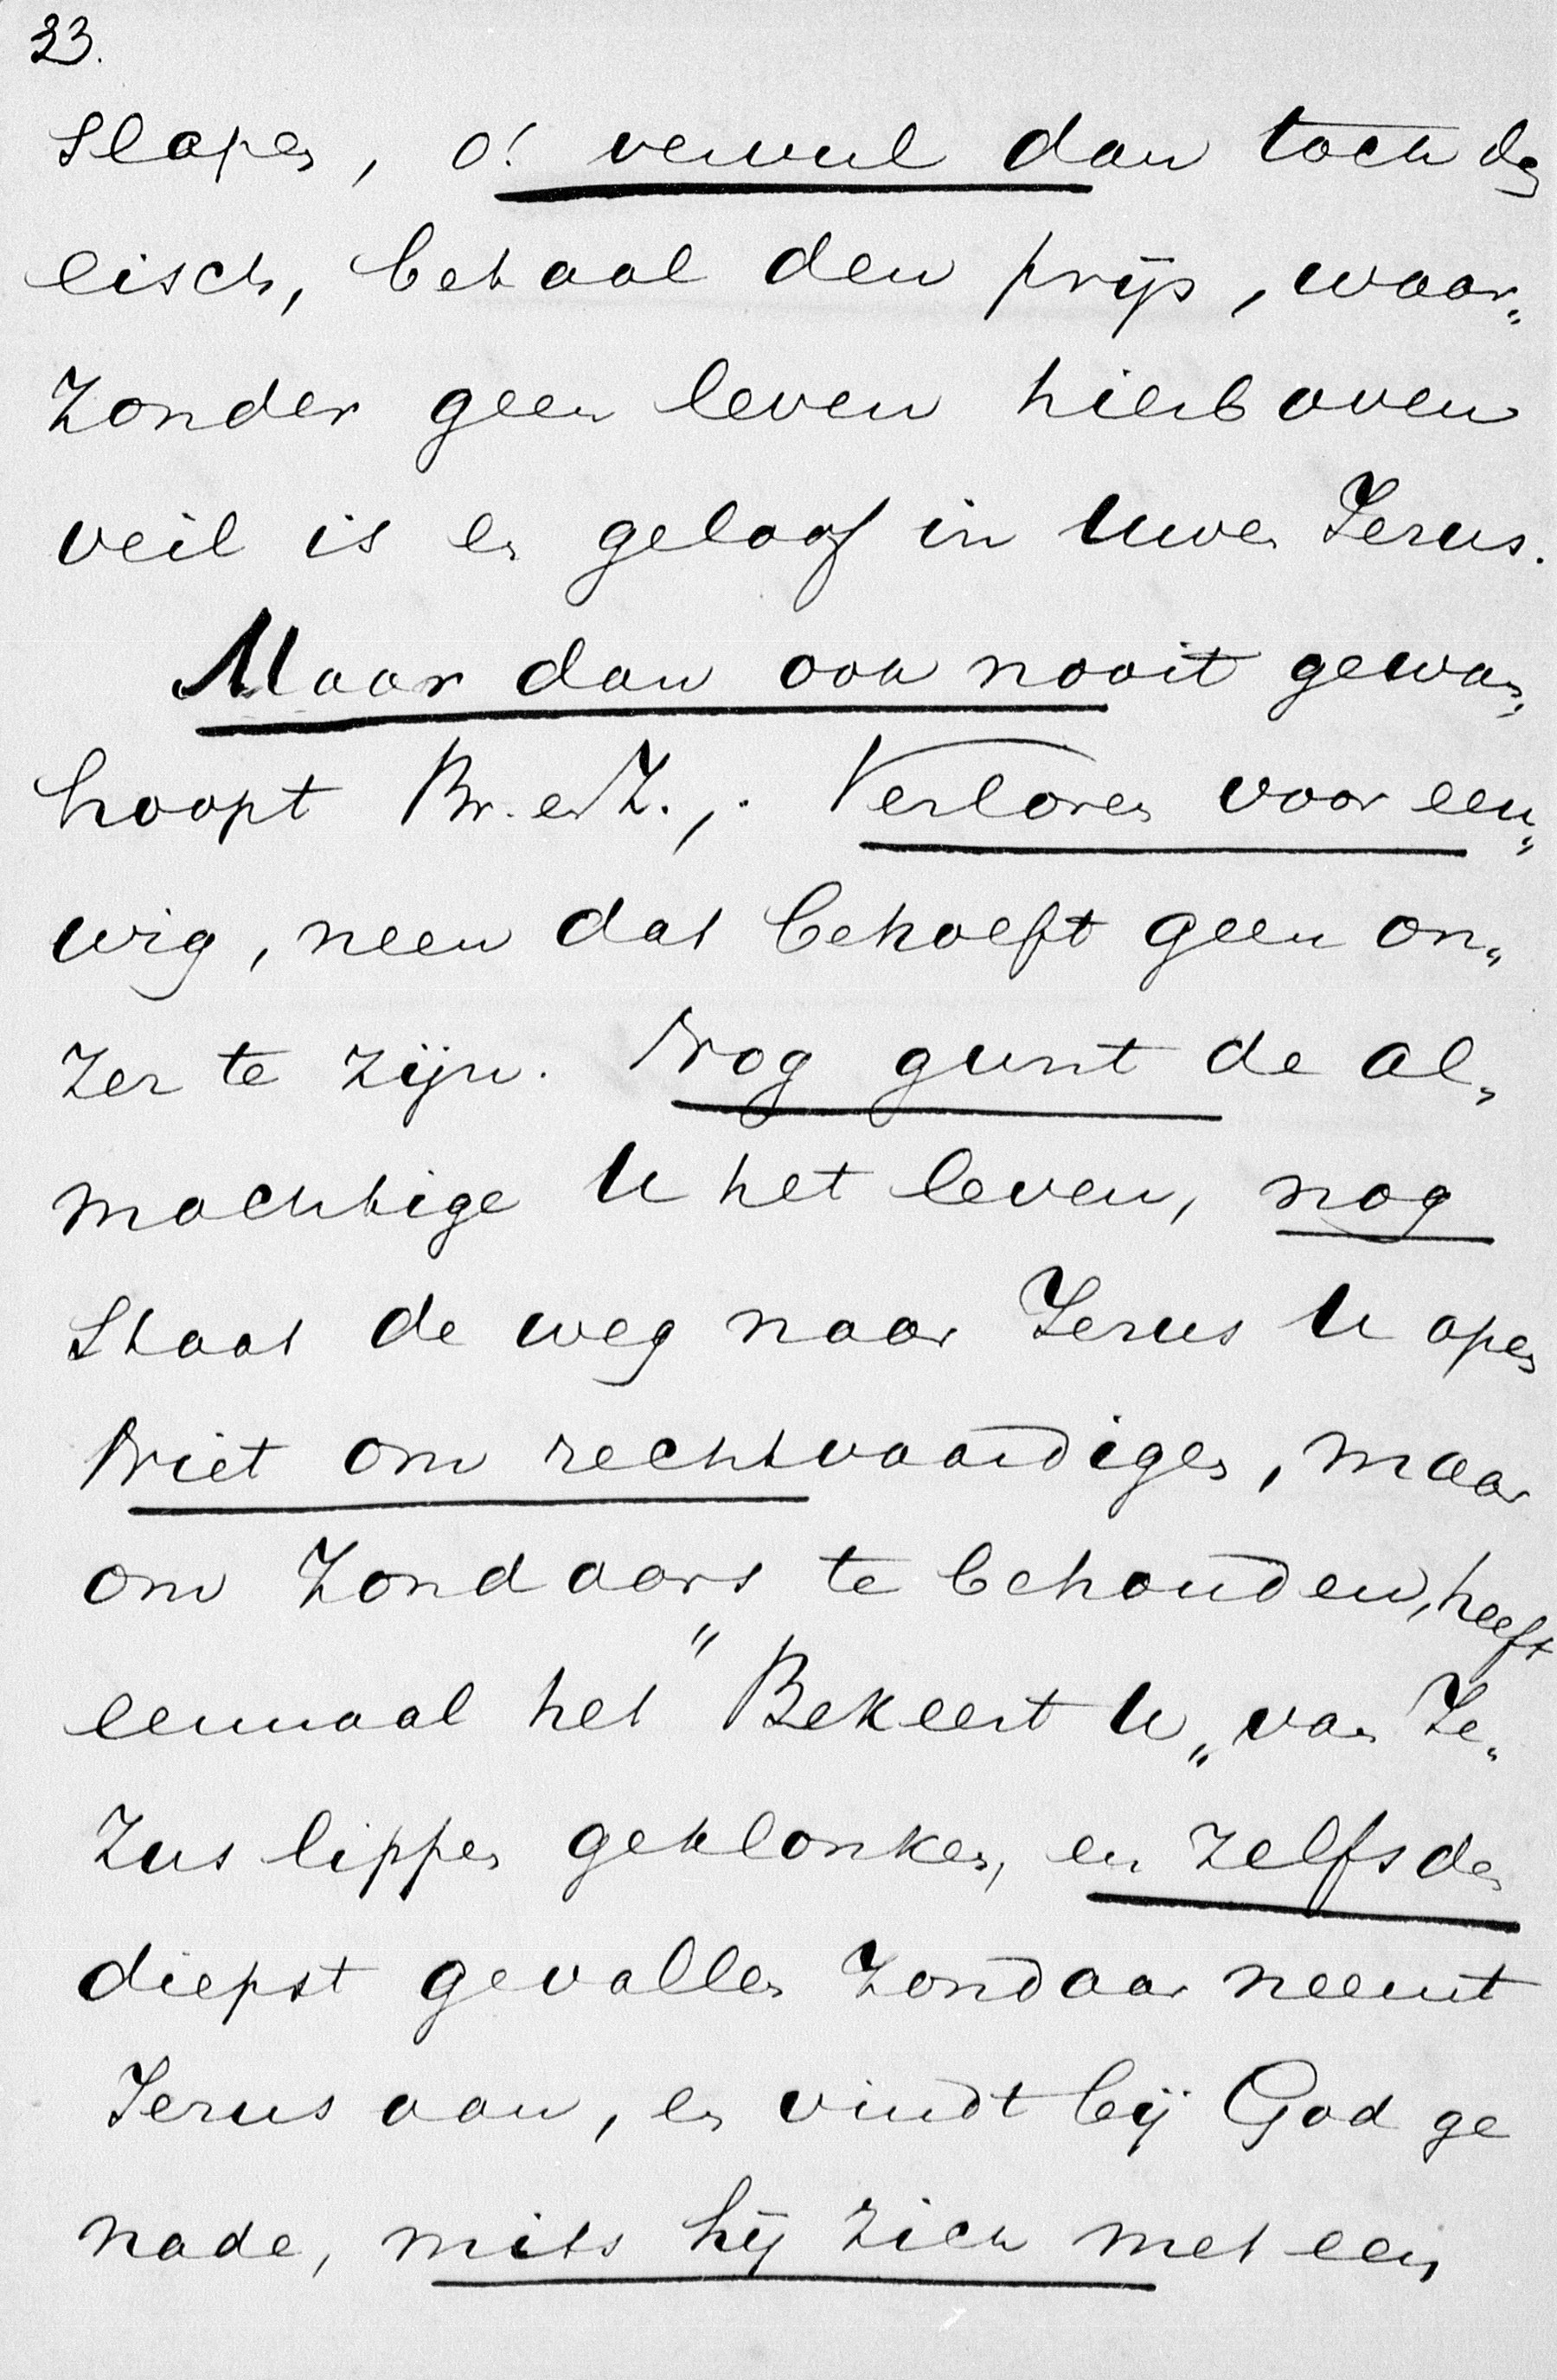 23.
slapen, o! vervul dan toch den
eisch, betaal den prijs, waar„
zonder geen leven hierboven
veil is en geloof in Uwen Jezus.
Maar dan ook nooit gewan„
hoopt Br. en Z.,. Verloren voor eeu„
wig, neen dat behoeft geen on„
zer te zijn. Nog gunt de al„
machtige U het leven, nog
staat de weg naar Jezus U open
Niet om rechtvaardigen, maar
om zondaars te behouden, heeft
eenmaal het "Bekeert U„ van Je„
zus lippen geklonken, en zelfs den
diepst gevallen zondaar neemt
Jezus aan, en vindt bij God ge
nade, mits hij zich met een